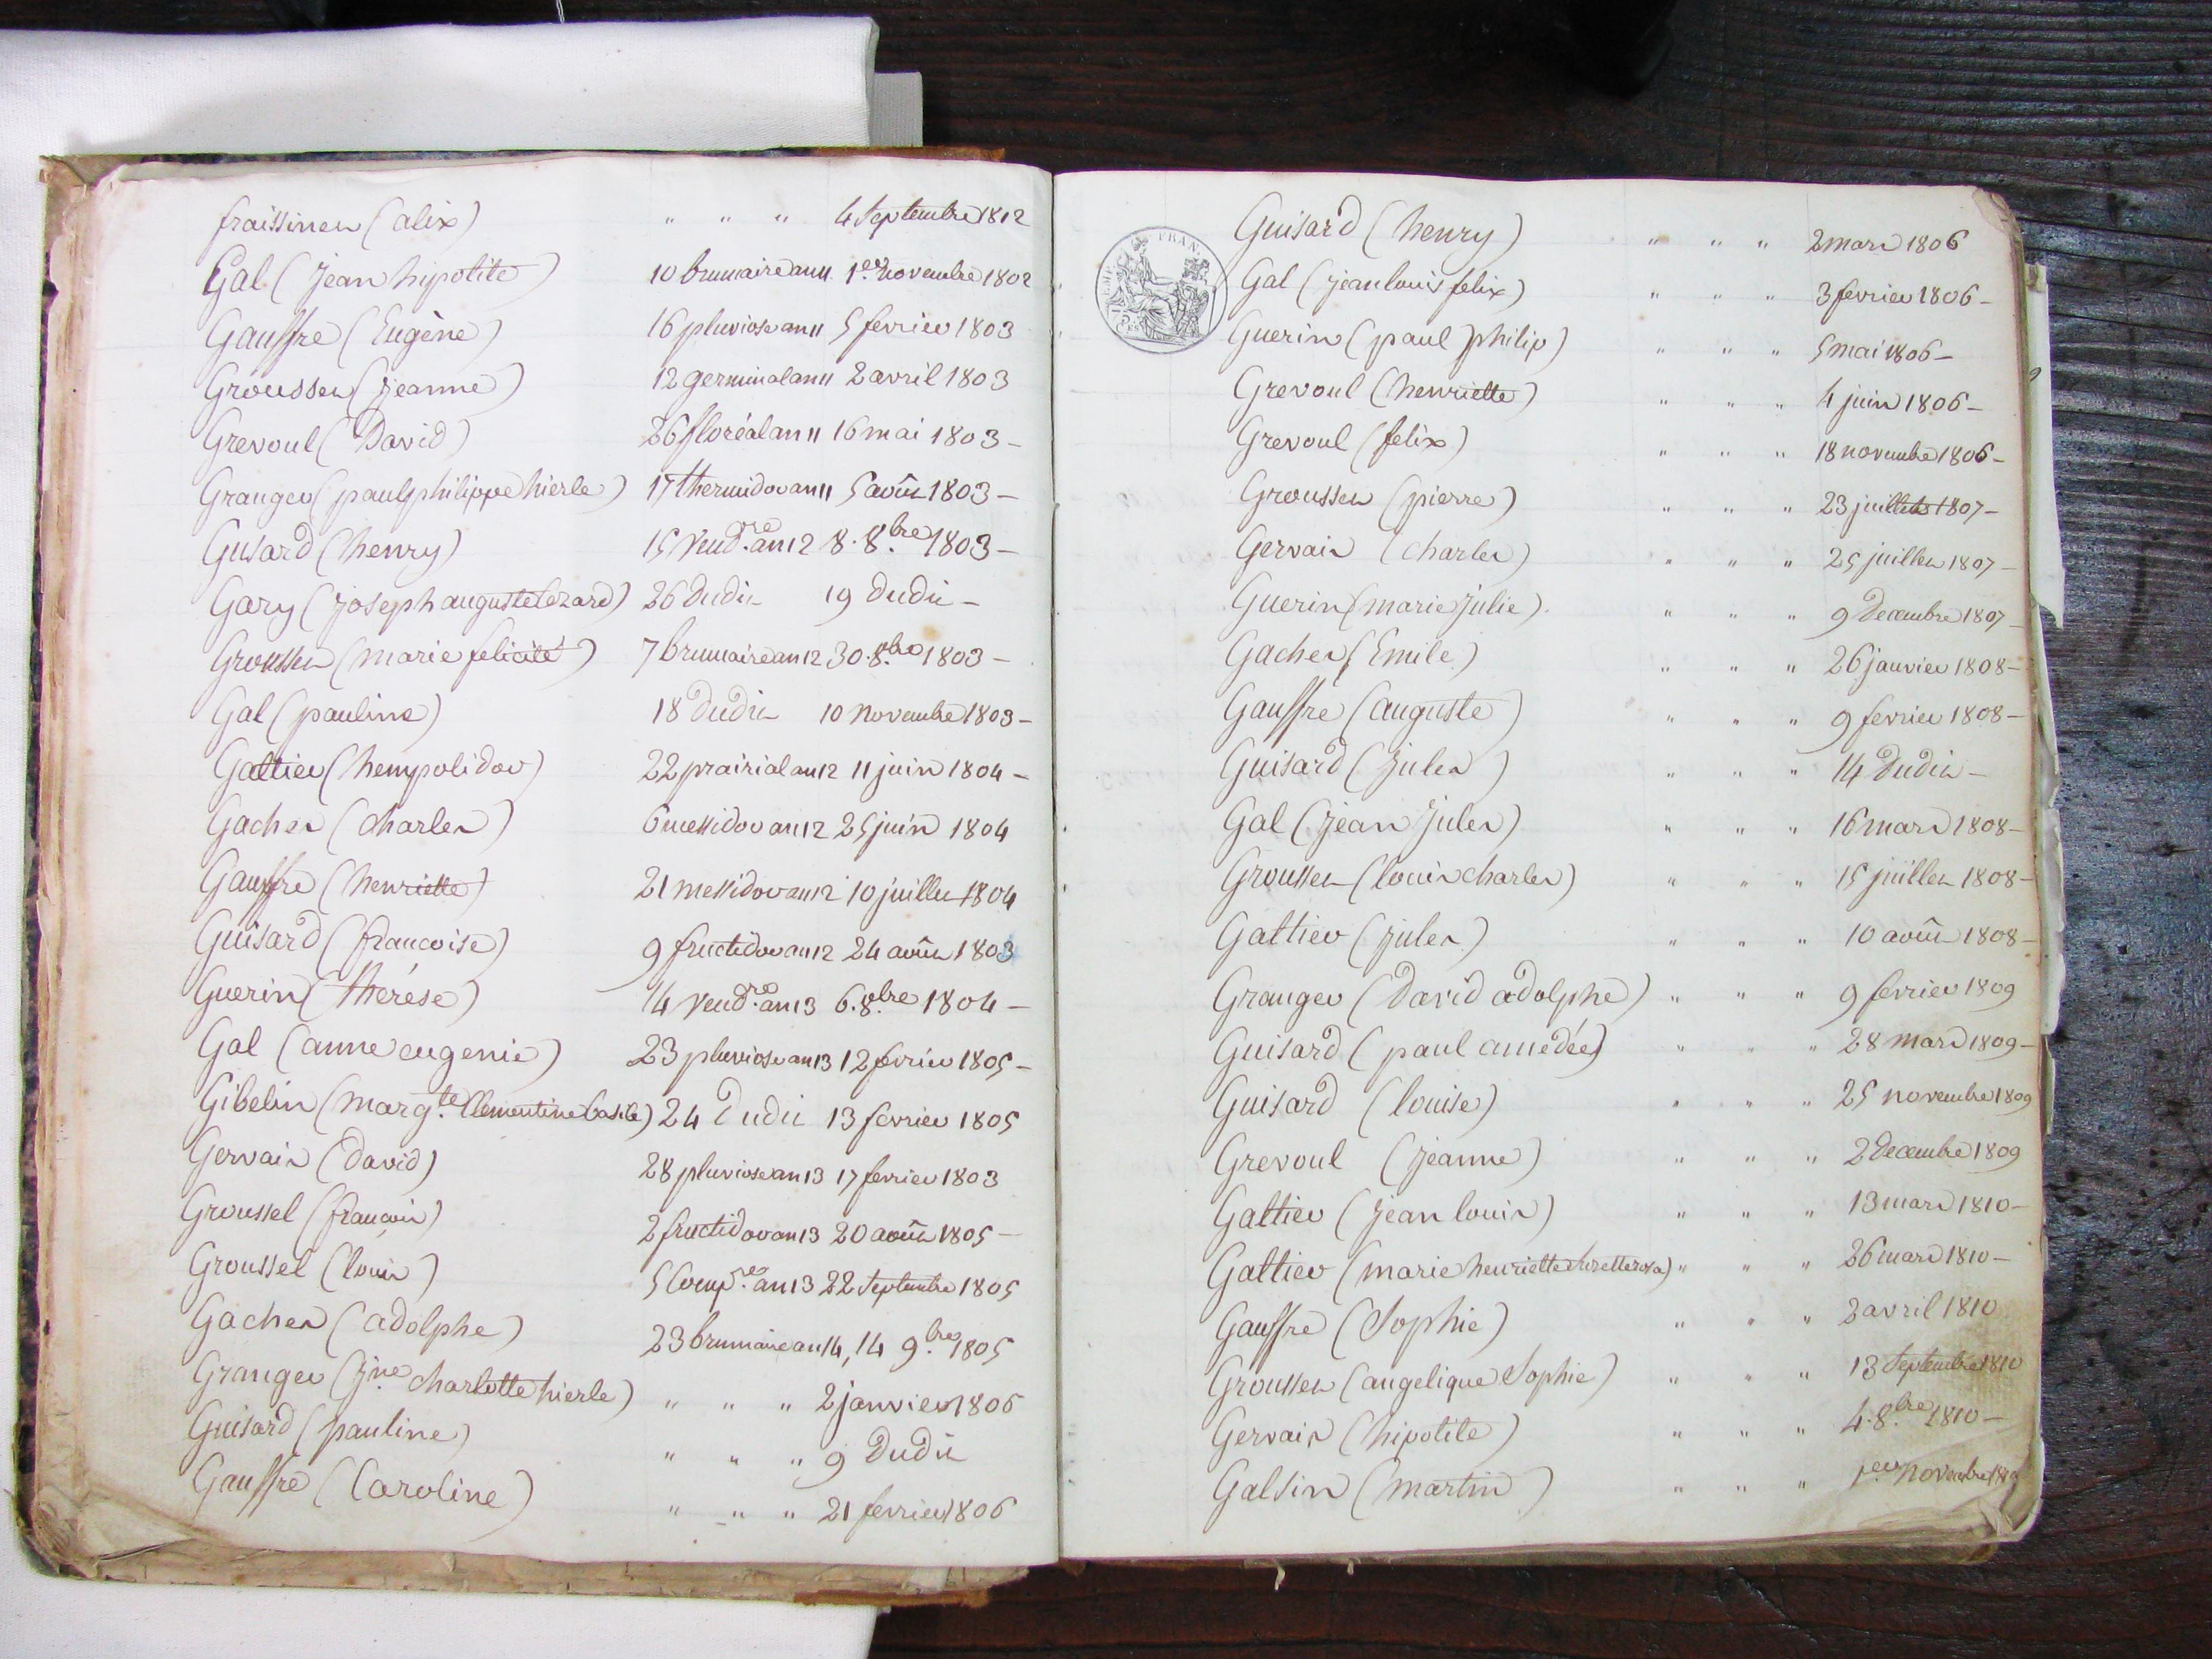 fraissinet (alix) " " " 4 Septembre 1812
Gal (jean hipolite) 10 brumaire an 11 1.er novembre 1802
Gauffre (Eugène) 16 pluviose an 11 5 fevrier 1803
Grousset (jeanne) 12 germinal an 11 2 avril 1803
Grevoul (David) 26 floréal an 11 16 mai 1803 –
Granger (paul philippe hierle) 17 thermidor an 11 5 août 1803 –
Gusard (henry) 15 Vend.re an 12 8. 8.bre 1803 –
Gary (joseph auguste Cezard) 26 dudit 19 dudit –
Grousset (marie felicité) 7 brumaire an 12 30. 8.bre 1803 –
Gal (pauline) 18 dudit 10 novembre 1803 –
Galtier (hempolidor) 22 prairial an 12 11 juin 1804 –
Gaches (charles) 6 messidor an 12 25 juin 1804
Gauffre (henriette) 21 messidor an 12 10 juillet 1804
Guisard (francoise) 9 fructidor an 12 24 août 1803
Guerin (thérèse) 14 vend.re an 13 6. 8.bre 1804 –
Gal (anne eugenie) 23 pluviose an 13 12 fevrier 1805 –
Gibelin (marg.te Clementine basile) 24 dudit 13 fevrier 1805
Gervais (david) 28 pluviose an 13 17 fevrier 1803
Groussel (françois) 2 fructidor an 13 20 août 1805 –
Groussel (louis) 5 Comp.re an 13 22 Septembre 1805
Gaches (adolphe) 23 brumaire an 14, 14 9.bre 1805
Granger (j.ne charlotte hierle) " " " 2 janvier 1806
Guisard (pauline) " " " 9 dudit
Gauffre (Caroline) " " " 21 fevrier 1806
FRAN
Guisard (henry) " " " 2 mars 1806
Gal (jean louis felix) " " " 3 fevrier 1806 –
Guerin (paul philip) " " " 5 mai 1806 –
Grevoul (henriette) " " " 4 juin 1806 –
Grevoul (felix) " " " 18 novembre 1806 –
Grousset (pierre) " " " 23 juillet 1807 –
Gervais (charles) " " " 25 juillet 1807 –
Guerin (marie julie) " " " 9 Decembre 1807
Gaches (Emile) " " " 26 janvier 1808 –
Gauffre (auguste) " " " 9 fevrier 1808 –
Guisard (jules) " " " 14 dudit –
Gal (jean jules) " " " 16 mars 1808 –
Grousset (louis charles) " " " 15 juillet 1808 –
Galtier (jules) " " " 10 août 1808 –
Granger (David adolphe) " " " 9 fevrier 1809
Guisard (paul amedée) " " " 28 mars 1809 –
Guisard (louise) " " " 25 novembre 1809
Grevoul (jeanne) " " " 2 decembre 1809
Galtier (jean louis) " " " 13 mars 1810 –
Galtier (marie henriette rosa) " " " 26 mars 1810 –
Gauffre (Sophie) " " " 2 avril 1810
Grousset (angelique Sophie) " " " 13 Septembre 1810
Gervais (hipolite) " " " 4. 8.bre 1810 –
Galsin (martin) " " " 1.er novembre 1810